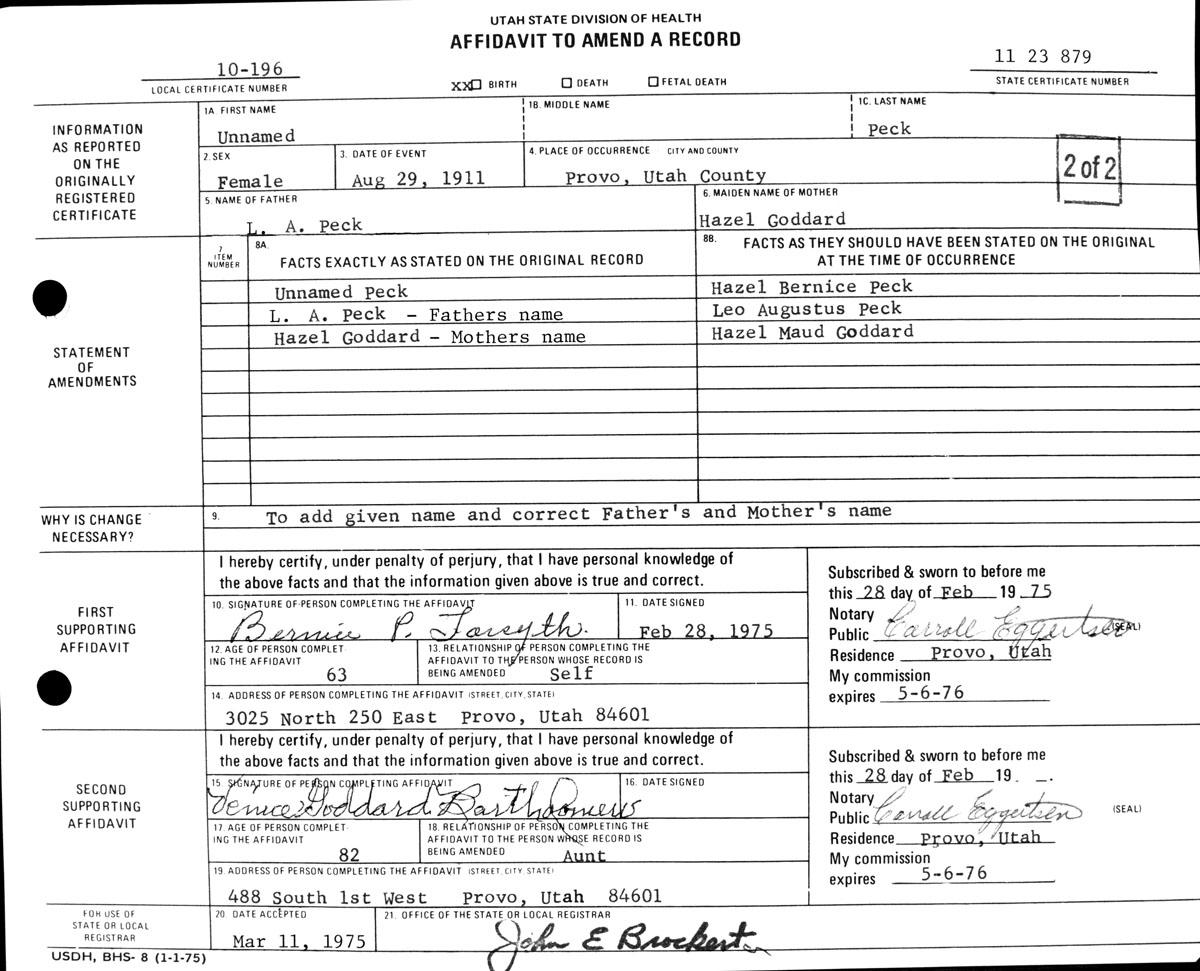 UTAH STATE DIVISION OF HEALTH
AFFIDAVIT TO AMEND A RECORD
10-196
LOCAL CERTIFICATE NUMBER
XX☐ BIRTH ☐ DEATH ☐ FETAL DEATH
11 23 879
STATE CERTIFICATE NUMBER
INFORMATION
AS REPORTED
ON THE
ORIGINALLY
REGISTERED
CERTIFICATE
1A FIRST NAME
Unnamed
1B. MIDDLE NAME
1C. LAST NAME
Peck
2. SEX
Female
3. DATE OF EVENT
Aug 29, 1911
4. PLACE OF OCCURRENCE CITY AND COUNTY
Provo, Utah County
2 of 2
5. NAME OF FATHER
L. A. Peck
6. MAIDEN NAME OF MOTHER
Hazel Goddard
STATEMENT
OF
AMENDMENTS
7
ITEM
NUMBER
8A.
FACTS EXACTLY AS STATED ON THE ORIGINAL RECORD
8B. FACTS AS THEY SHOULD HAVE BEEN STATED ON THE ORIGINAL
AT THE TIME OF OCCURRENCE
Unnamed Peck Hazel Bernice Peck
L. A. Peck - Fathers name Leo Augustus Peck
Hazel Goddard - Mothers name Hazel Maud Goddard
WHY IS CHANGE
NECESSARY?
9. To add given name and correct Father's and Mother's name
FIRST
SUPPORTING
AFFIDAVIT
I hereby certify, under penalty of perjury, that I have personal knowledge of
the above facts and that the information given above is true and correct.
10. SIGNATURE OF PERSON COMPLETING THE AFFIDAVIT
Bernice P. Forsyth.
11. DATE SIGNED
Feb 28, 1975
12. AGE OF PERSON COMPLET-
ING THE AFFIDAVIT
63
13. RELATIONSHIP OF PERSON COMPLETING THE
AFFIDAVIT TO THE PERSON WHOSE RECORD IS
BEING AMENDED Self
14. ADDRESS OF PERSON COMPLETING THE AFFIDAVIT (STREET, CITY, STATE)
3025 North 250 East Provo, Utah 84601
Subscribed & sworn to before me
this 28 day of Feb 19 75
Notary
Public Carroll Eggertsen (SEAL)
Residence Provo, Utah
My commission
expires 5-6-76
SECOND
SUPPORTING
AFFIDAVIT
I hereby certify, under penalty of perjury, that I have personal knowledge of
the above facts and that the information given above is true and correct.
15. SIGNATURE OF PERSON COMPLETING AFFIDAVIT
Venice Goddard Bartholomew
16. DATE SIGNED
17. AGE OF PERSON COMPLET-
ING THE AFFIDAVIT
82
18. RELATIONSHIP OF PERSON COMPLETING THE
AFFIDAVIT TO THE PERSON WHOSE RECORD IS
BEING AMENDED Aunt
19. ADDRESS OF PERSON COMPLETING THE AFFIDAVIT (STREET, CITY, STATE)
488 South 1st West Provo, Utah 84601
Subscribed & sworn to before me
this 28 day of Feb 19
Notary
Public Carroll Eggertsen (SEAL)
Residence Provo, Utah
My commission
expires 5-6-76
FOR USE OF
STATE OR LOCAL
REGISTRAR
20 DATE ACCEPTED
Mar 11, 1975
21. OFFICE OF THE STATE OR LOCAL REGISTRAR
John E Brockert
USDH, BHS- 8 (1-1-75)